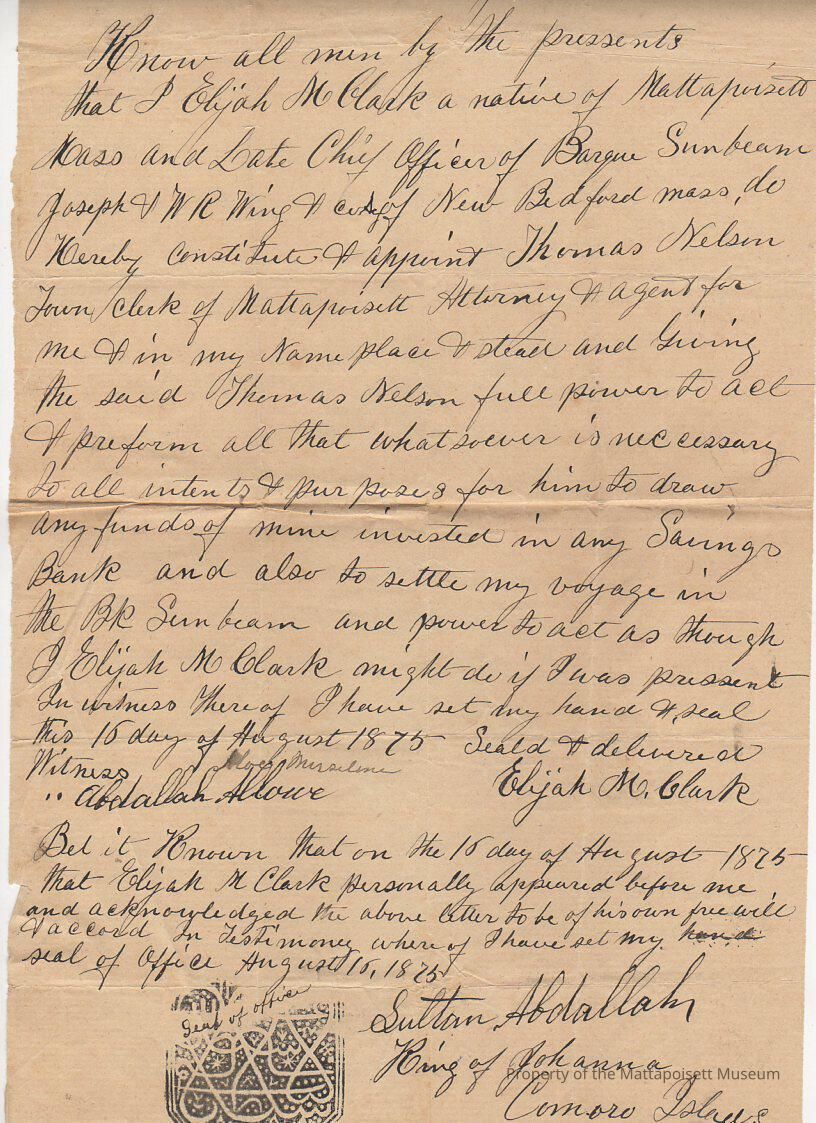 Know all men by the pressents
that I Elijah M Clark a native of Mattapoisett
Mass and Late Chief Officer of Barque Sunbeam
Joseph & W R Wing & co of New Bedford mass, do
Hereby constitute & appoint Thomas Nelson
Town Clerk of Mattapoisett Attorney & agent for
me & in my Name place & stead and Giving
the said Thomas Nelson full power to act
& preform all that whatsoever is neccessary
to all intents & purposes for him to draw
any funds of mine invested in any Savings
Bank and also to settle my voyage in
the Bk Sunbeam and power to act as though
I Elijah M Clark might do if I was pressent
In witness Thereof I have set my hand & seal
this 16 day of August 1875 Seald & delivered
Witness
" Abdallah Allowe Elijah M. Clark
Bet it Known that on the 16 day of August 1875
that Elijah M Clark personally appeared before me
and acknowledged the above letter to be of his own free will
& accord In Testimoney where of I have set my hand
seal of Office August 16, 1875
Seal of office
Sultan Abdallah
King of Johanna
Comoro Islads
Property of the Mattapoisett Museum